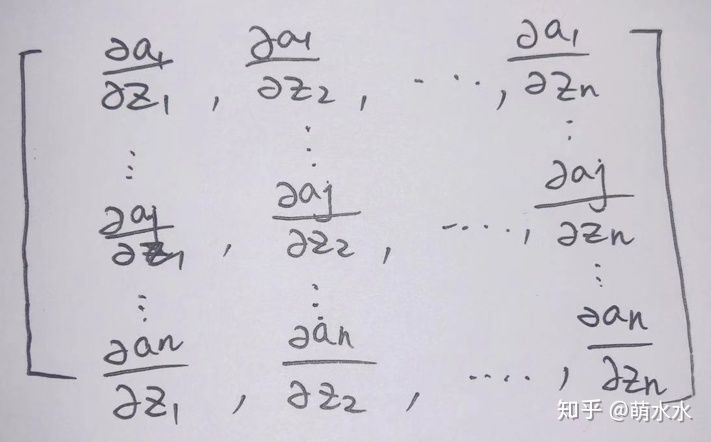 ∂a₁/∂z₁ , ∂a₁/∂z₂ , ····, ∂a₁/∂zn
⋮ ⋮ ⋮
∂aj/∂z₁ , ∂aj/∂z₂ , ····, ∂aj/∂zn
⋮ ⋮ ⋮
∂an/∂z₁ , ∂an/∂z₂ , ····, ∂an/∂zn
知乎 @萌水水